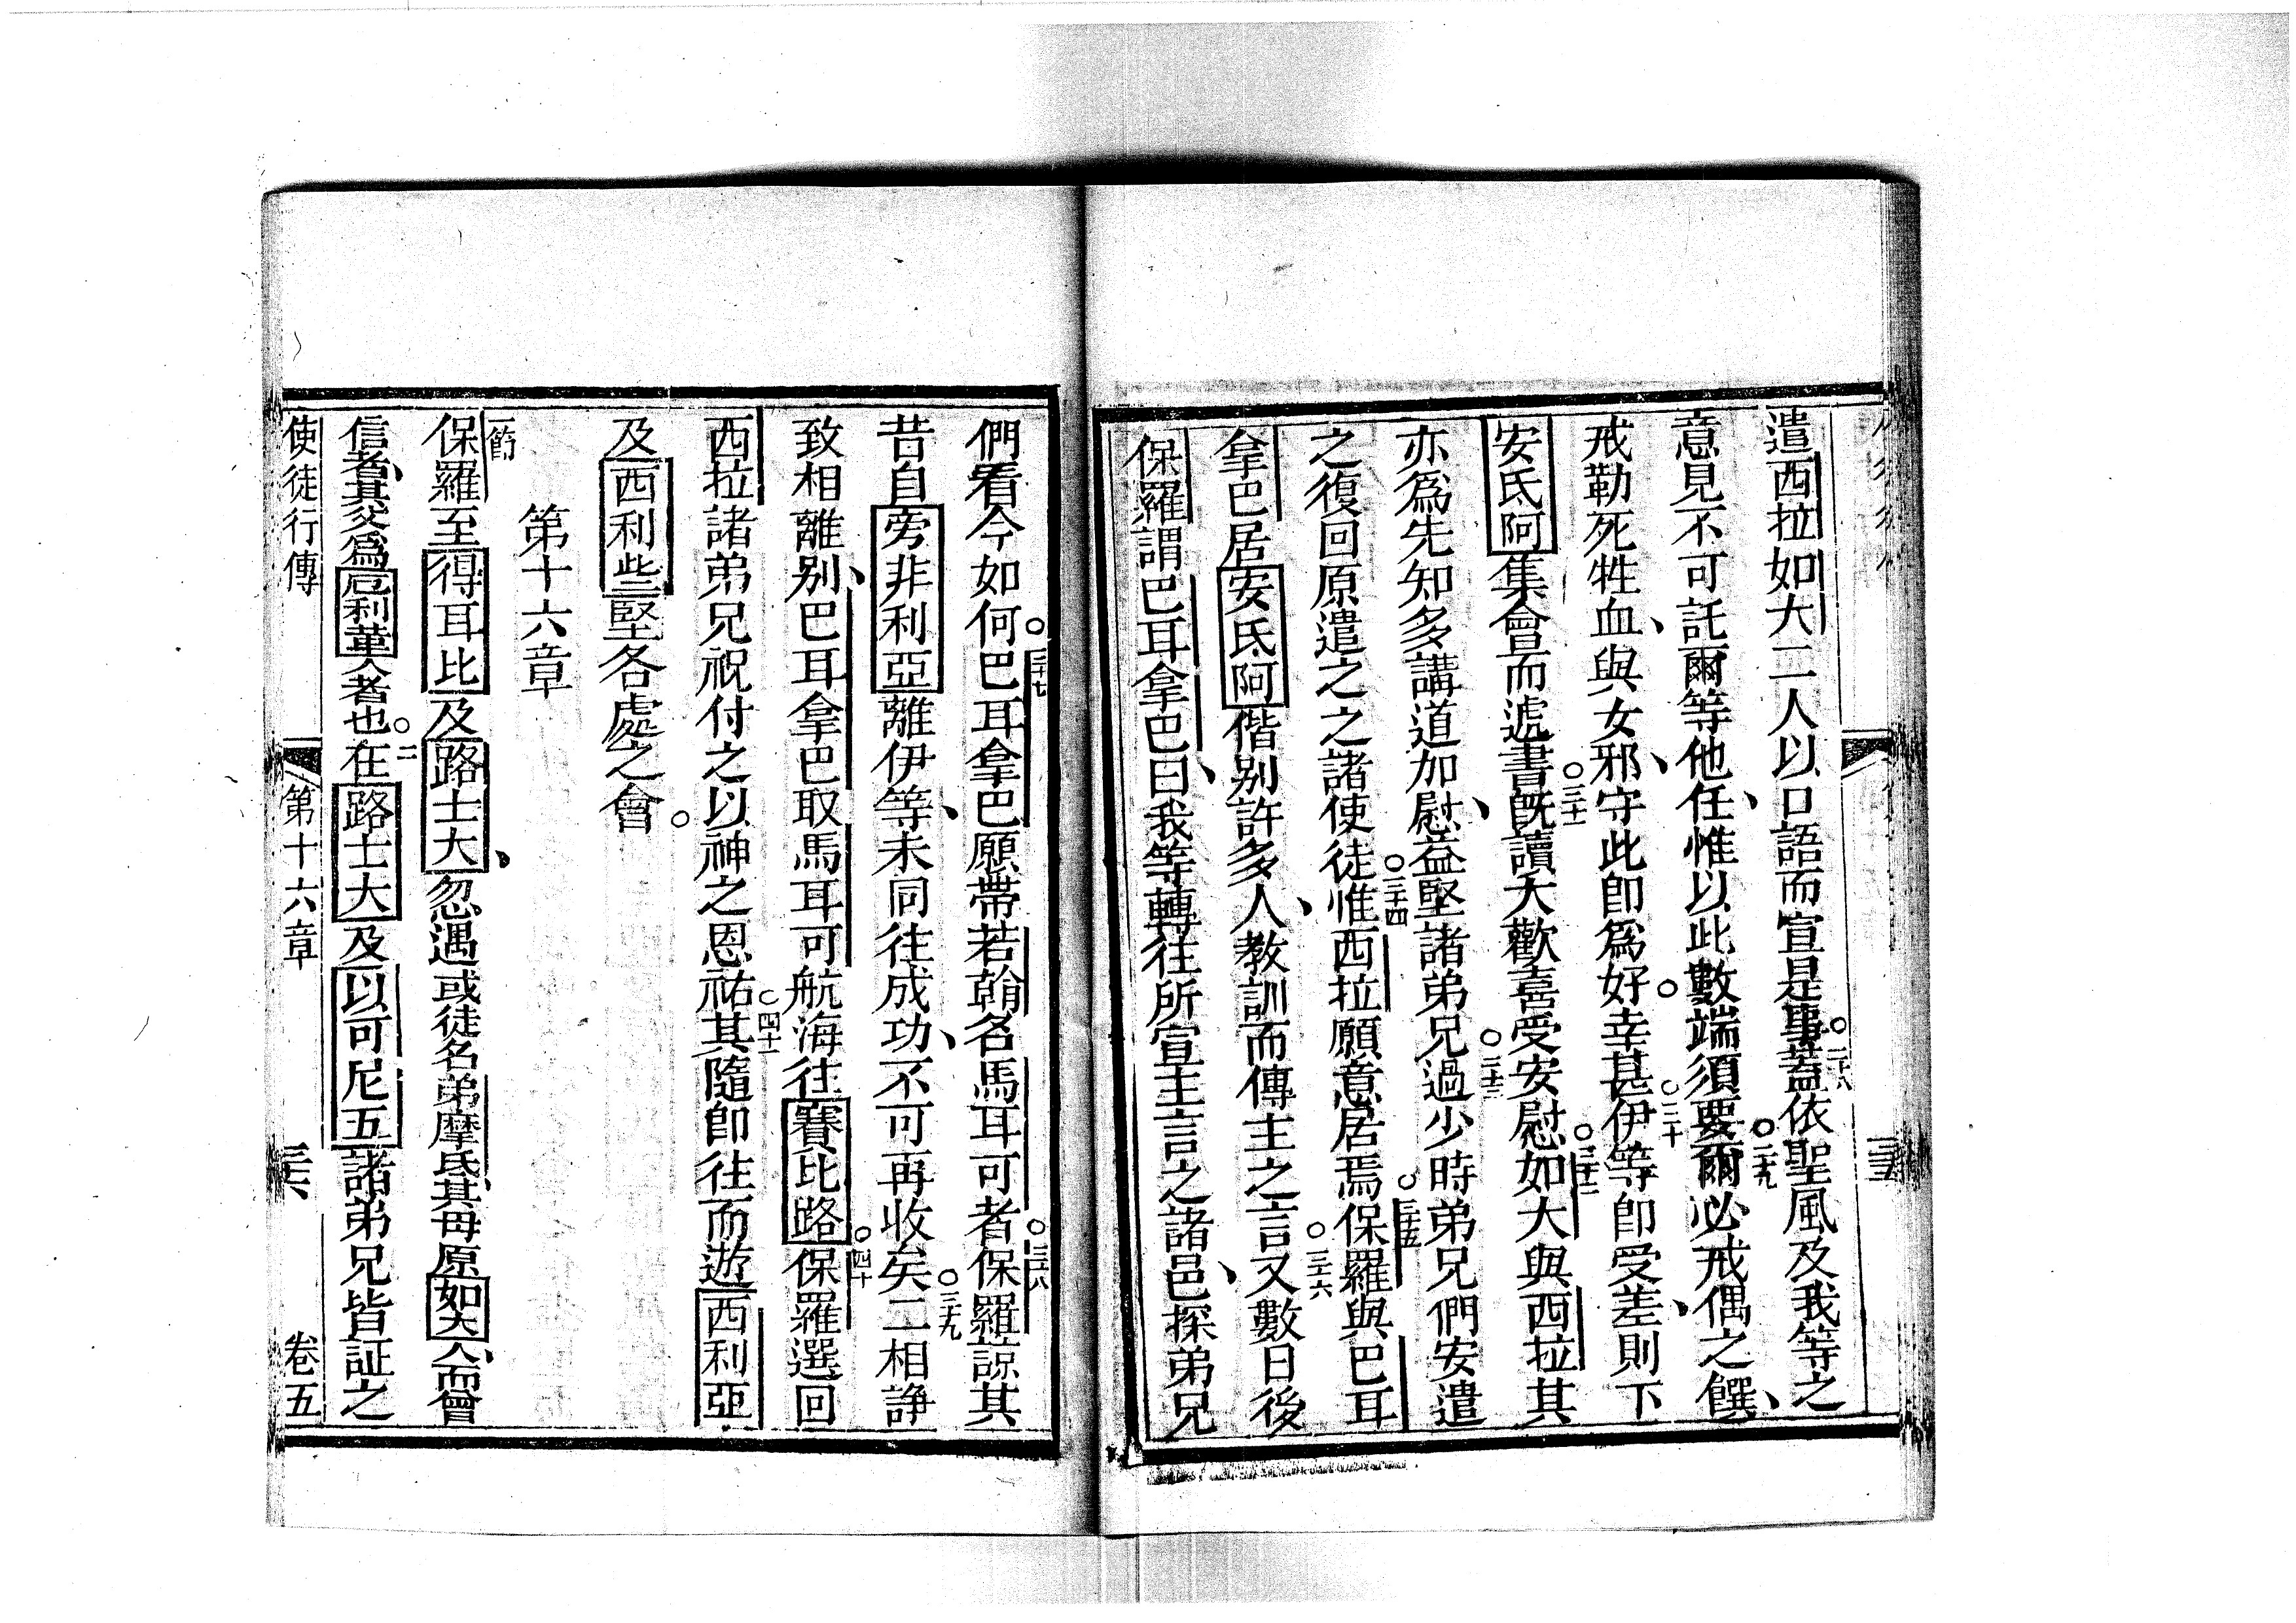 遣西拉如大二人以口語而宣是事○二十八蓋依聖風及我等之
意見不可託爾等他任、惟以此數端須要○二十九爾必戒偶之饌、
戒勒死牲血、與女邪、守此卽爲好○幸甚○三十伊等卽受差、則下
安氐阿集會而遞書○三十一旣讀大歡喜受安慰○三十二如大與西拉其
亦爲先知多講道加慰、益堅諸弟兄○三十三過少時弟兄們安遣
之復回原遣之之諸使徒○三十四惟西拉願意居焉○三十五保羅與巴耳
拿巴居安氐阿偕别許多人、教訓而傳主之言○三十六又數日後
保羅謂巴耳拿巴曰、我等轉往所宣主言之諸邑、探弟兄
們看今如何○三十七巴耳拿巴願帶若翰名馬耳可者○三十八保羅諒其
昔自旁非利亞離伊等、未同往成功、不可再收矣○三十九二相諍
致相離别、巴耳拿巴取馬耳可航海往賽比路○四十保羅選回
西拉諸弟兄祝付之以神之恩祐○四十一其隨卽往而遊西利亞
及西利些堅各處之會○
第十六章
一節保羅至得耳比及路士大、忽遇或徒名弟摩氐、其母原如大人、而曾
信者、其父爲厄利革人者也○二在路士大及以可尼五諸弟兄皆証之
使徒行傳 第十六章 卷五